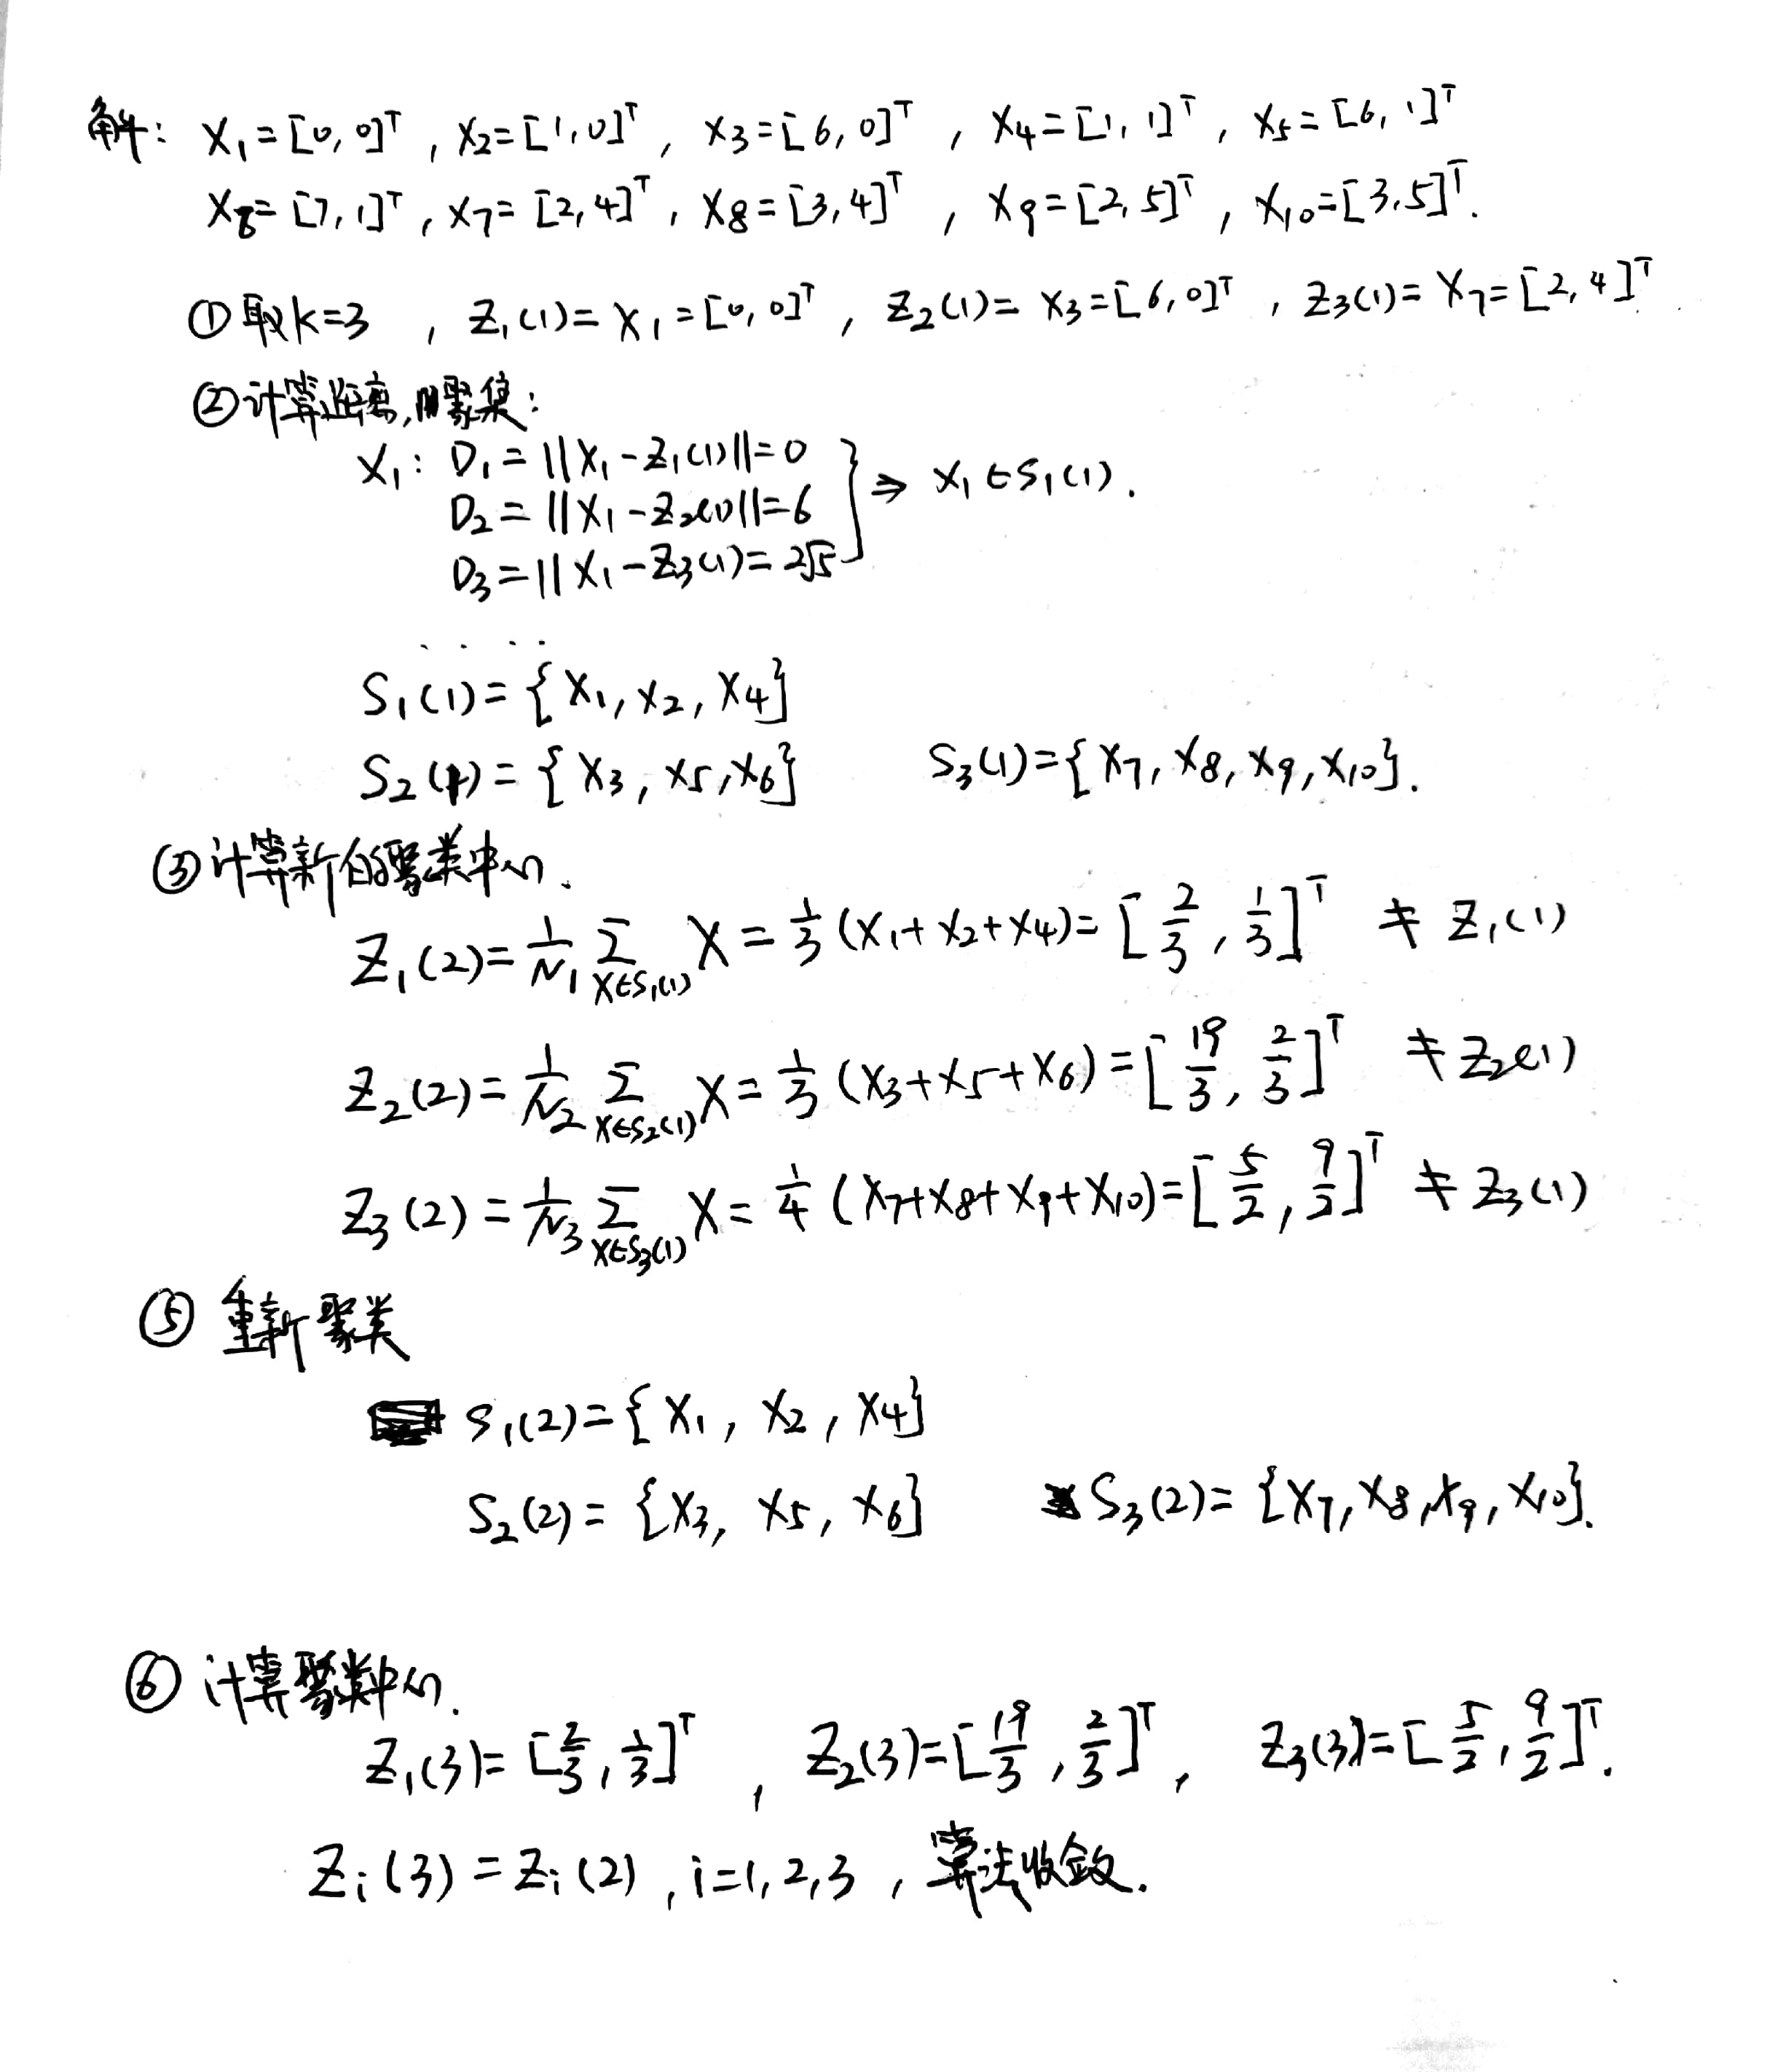 解: X₁=[0,0]ᵀ, X₂=[1,0]ᵀ, X₃=[6,0]ᵀ, X₄=[1,1]ᵀ, X₅=[6,1]ᵀ
X₆=[7,1]ᵀ, X₇=[2,4]ᵀ, X₈=[3,4]ᵀ, X₉=[2,5]ᵀ, X₁₀=[3,5]ᵀ.
①取k=3, Z₁(1)=X₁=[0,0]ᵀ, Z₂(1)=X₃=[6,0]ᵀ, Z₃(1)=X₇=[2,4]ᵀ.
②计算距离,聚类:
X₁: D₁=||X₁-Z₁(1)||=0
D₂=||X₁-Z₂(1)||=6 } ⇒ X₁∈S₁(1).
D₃=||X₁-Z₃(1)=2√5
.....
S₁(1)={X₁,X₂,X₄}
S₂(1)={X₃,X₅,X₆} S₃(1)={X₇,X₈,X₉,X₁₀}.
③计算新的聚类中心.
Z₁(2)=1/N₁ Σ_{X∈S₁(1)} X=1/3(X₁+X₂+X₄)=[2/3,1/3]ᵀ ≠Z₁(1)
Z₂(2)=1/N₂ Σ_{X∈S₂(1)} X=1/3(X₃+X₅+X₆)=[19/3,2/3]ᵀ ≠Z₂(1)
Z₃(2)=1/N₃ Σ_{X∈S₃(1)} X=1/4(X₇+X₈+X₉+X₁₀)=[5/2,9/2]ᵀ ≠Z₃(1)
⑤重新聚类
S₁(2)={X₁,X₂,X₄}
S₂(2)={X₃,X₅,X₆} S₃(2)={X₇,X₈,X₉,X₁₀}.
⑥计算聚类中心.
Z₁(3)=[2/3,1/3]ᵀ, Z₂(3)=[19/3,2/3]ᵀ, Z₃(3)=[5/2,9/2]ᵀ.
Zᵢ(3)=Zᵢ(2),i=1,2,3,算法收敛.